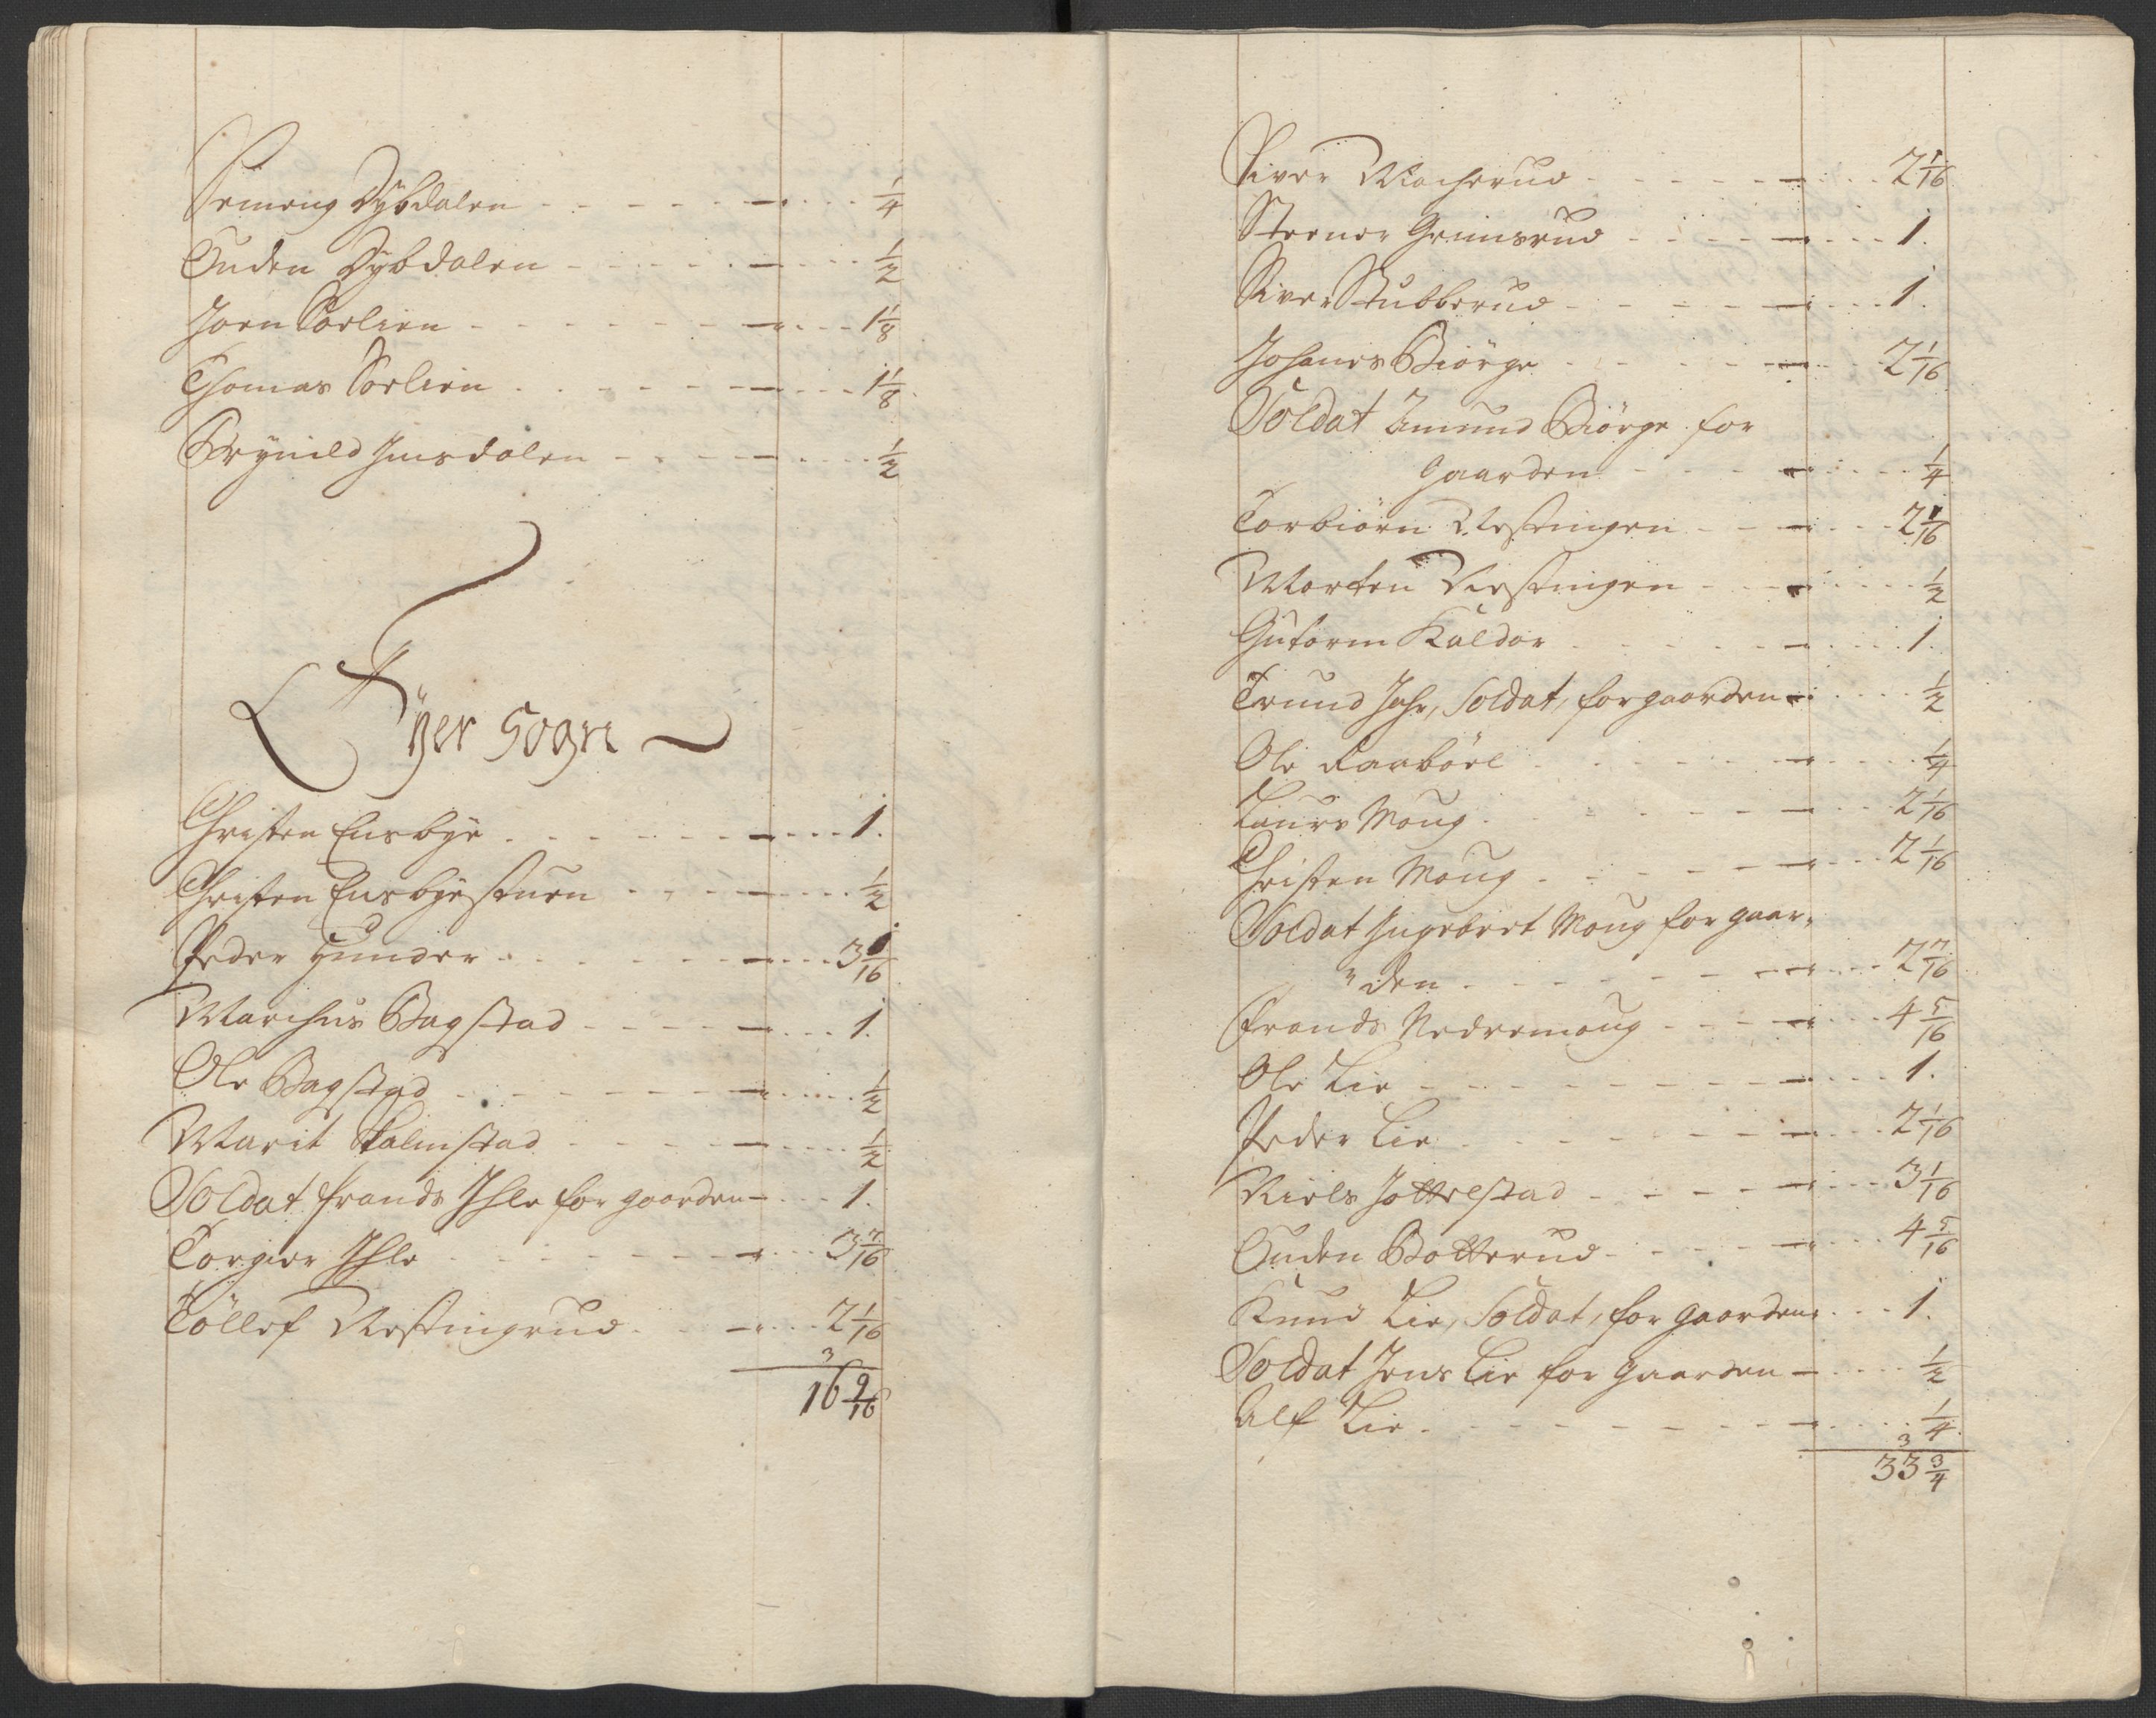 Simeng Dybdalen 1/4
Ouden Dybdalen 1/2
Joen Sorlien 1 1/8
Thomas Sorlien 1 1/8
Brynild Jmsdalen 1/2
Öyer Sogn
Christen Ensbye 1.
Christen Ensbyestuen 1/2
Peder Hunder 3 1/16
Marchus Bagstad 1.
Ole Bagstad 1/2
Marit Skalmstad 1/2
Soldat frands Jhle for gaarden 1.
Torgier Jhle 3 7/16
Töllef Nestingrud 2 1/16
3
16 9/16
Siver Mocherud 2 1/16
Steener Grimsrud 1.
Siver Stubberud 1.
Johanes Biörge 2 1/16
Soldat Amund Biörge for
Gaarden 1/4
Torbiörn Nestingen 2 1/16
Morten Nestingen 1/2
Gutorm Kaldor 1.
Trund Jahr, Soldat, for gaarden 1/2
Ole Raaböel 1/4
Laurs Moug 2 1/16
Christen Moug 2 1/16
Soldat Jngebret Moug for gaar-
den 2 7/16
Frands Nedremoug 4 5/16
Ole Lie 1.
Peder Lie 2 1/16
Niels Jottrestad 3 1/16
Ouden Botterud 4 5/16
Knud Lie, Soldat, for gaarden 1.
Soldat Jens Lie for Gaarden 1/2
Alf Lie 1/4
3
33 3/4